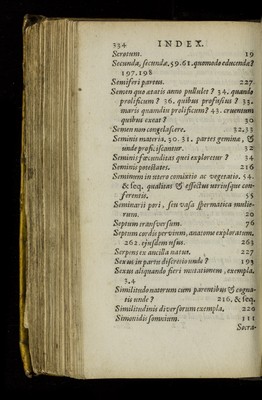 334 INDEX.
Serotum. 19
Secundæ, secundæ. 59.61. quomodo educendæ?
197.198
Semiferi partus. 227
Semen quo ætatis anno pullulet? 34. quando
prolificum? 36. quibus profusius? 33.
maris quamdiu prolificum? 43. cruentum
quibus exeat? 30
Semen non congelascere. 32.33
Seminis materia. 30.31. partes geminæ, &
unde proficiscantur. 32
Seminis fœcunditas quei exploretur? 34
Seminis potestates. 216
Seminum in utero comixtio ac vegetatio. 54.
& seq. qualitas & effectus utriusque con-
ferentis. 55
Seminarii pori, seu vasa spermatica mulie-
rum. 20
Septum transversum. 76
Septum cordis pervium, anatome exploratum.
262. ejusdem usus. 263
Serpens ex ancilla natus. 227
Sexus in partu discretio unde? 193
Sexus aliquando fieri mutationem, exempla.
3.4
Similitudo natorum cum parentibus & cogna-
tis unde? 216, & seq.
Similitudinis diversorum exempla. 220
Simonidis somnium. 311
Socra-